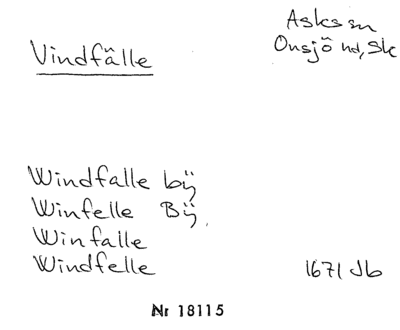 Vindfälle
Asks sn
Onsjö hd, Sk
Windfalle bÿ
Winfelle Bÿ.
Winfalle
Windfelle 1671 Jb
Nr 18115